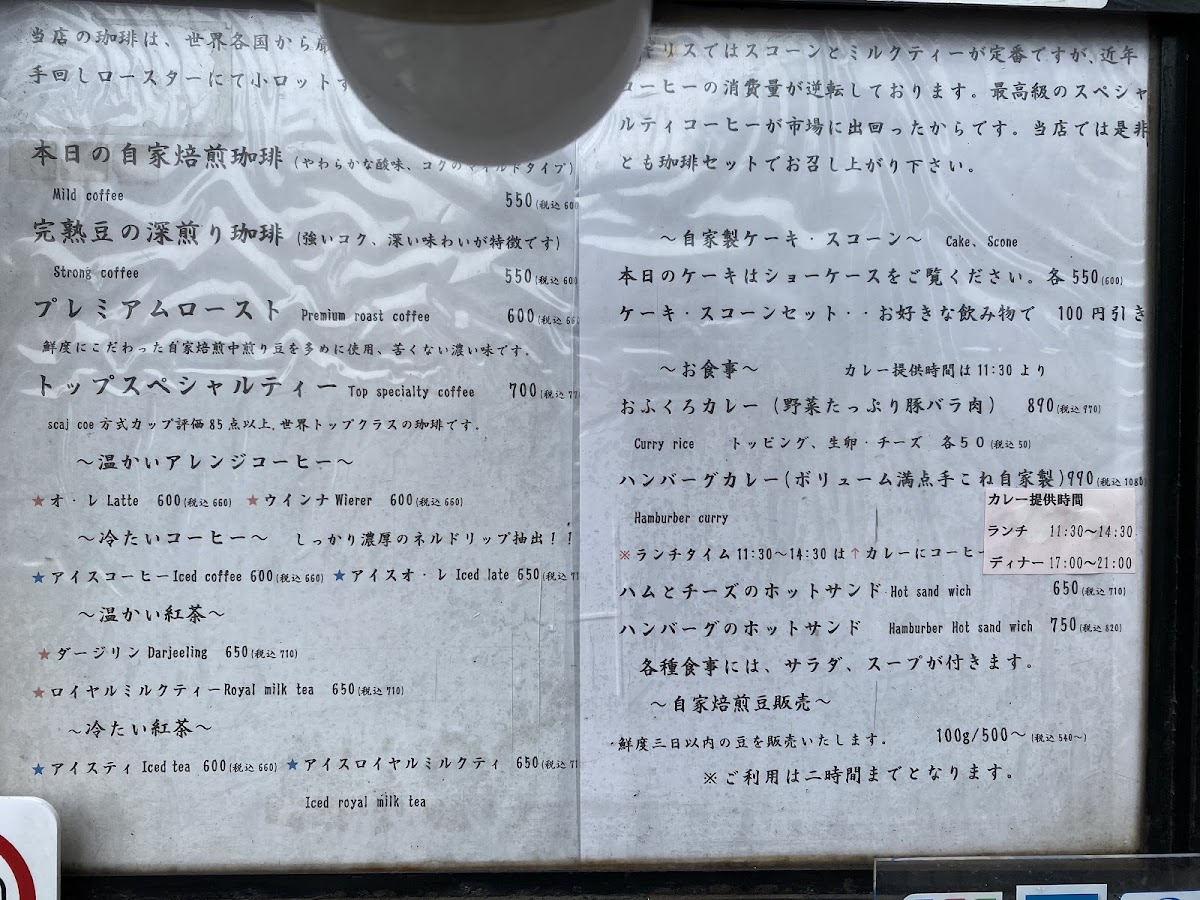 当店の珈琲は、世界各国から
手回しロースターにて小ロット
本日の自家焙煎珈琲 (やわらかな酸味、コクのマイルドタイプ)
Mild coffee 550(税込 600
完熟豆の深煎り珈琲 (強いコク、深い味わいが特徴です)
Strong coffee 550(税込 600
プレミアムロースト Premium roast coffee 600(税込 660
鮮度にこだわった自家焙煎中煎り豆を多めに使用、苦くない濃い味です。
トップスペシャルティー Top specialty coffee 700(税込 77
scaj coe 方式カップ評価 85 点以上、世界トップクラスの珈琲です。
～温かいアレンジコーヒー～
★オ・レ Latte 600(税込 660) ★ウインナ Wierer 600(税込 660)
～冷たいコーヒー～ しっかり濃厚のネルドリップ抽出！！
★アイスコーヒー Iced coffee 600(税込 660) ★アイスオ・レ Iced late 650(税込 71
～温かい紅茶～
★ダージリン Darjeeling 650(税込 710)
★ロイヤルミルクティー Royal milk tea 650(税込 710)
～冷たい紅茶～
★アイスティ Iced tea 600(税込 660) ★アイスロイヤルミルクティ 650(税込 71
Iced royal milk tea
ギリスではスコーンとミルクティーが定番ですが、近年
コーヒーの消費量が逆転しております。最高級のスペシャ
ルティコーヒーが市場に出回ったからです。当店では是非
とも珈琲セットでお召し上がり下さい。
～自家製ケーキ・スコーン～ Cake、Scone
本日のケーキはショーケースをご覧ください。各 550(600)
ケーキ・スコーンセット・・お好きな飲み物で 100 円引き
～お食事～ カレー提供時間は 11:30 より
おふくろカレー (野菜たっぷり豚バラ肉) 890(税込 970)
Curry rice トッピング、生卵・チーズ 各５０(税込 50)
ハンバーグカレー(ボリューム満点手こね自家製)990(税込 1080)
Hamburber curry
カレー提供時間
ランチ 11:30～14:30
ディナー 17:00～21:00
※ランチタイム 11:30～14:30 は↑カレーにコーヒー
ハムとチーズのホットサンド Hot sand wich 650(税込 710)
ハンバーグのホットサンド Hamburber Hot sand wich 750(税込 820)
各種食事には、サラダ、スープが付きます。
～自家焙煎豆販売～
・鮮度三日以内の豆を販売いたします。 100g/500～(税込 540～)
※ご利用は二時間までとなります。